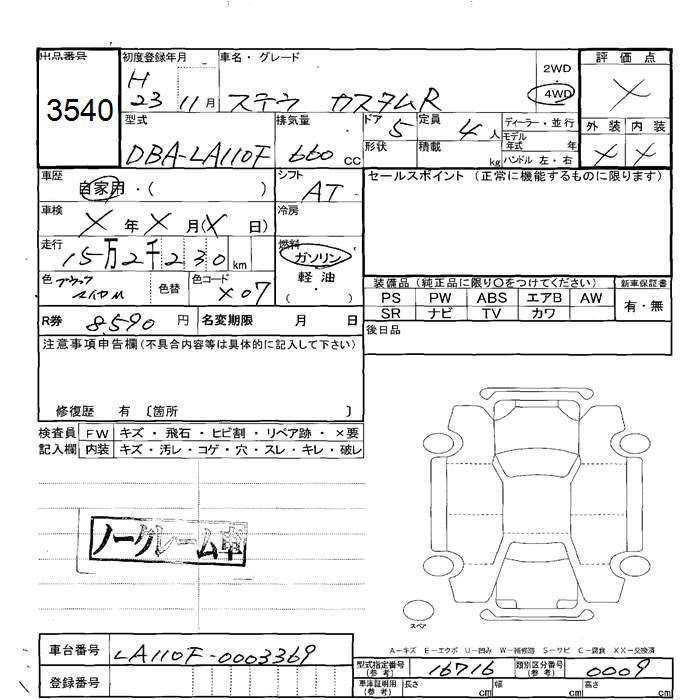 出品番号 初度登録年月 車名・グレード 評価点
3540
H 23 11月 ステラ カスタムR 2WD 4WD ×
型式 排気量 ドア 定員 ディーラー・並行 外装 内装
DBA-LA110F 660 cc 5 4人 モデル年式 年 × ×
形状 積載 kg ハンドル 左・右
車歴 シフト セールスポイント (正常に機能するものに限ります)
自家用・( ) AT
車検 冷房
× 年 × 月(× 日)
走行 燃料
15万2千230 km ガソリン
軽油
( ・ )
色 色替 色コード
X07
装備品 (純正品に限り〇をつけてください) 新車保証書
PS PW ABS エアB AW 有・無
SR ナビ TV カワ
R券 8,590 円 名変期限 月 日
後日品
注意事項申告欄(不具合内容等は具体的に記入して下さい)
修復歴 有 〔箇所 〕
検査員 FW キズ・飛石・ヒビ割・リペア跡・×要
記入欄 内装 キズ・汚レ・コゲ・穴・スレ・キレ・破レ
ノークレーム車
スペア
A－キズ E－エクボ U－凹み W－補修跡 S－サビ C－腐食 XX－交換済
車台番号 LA110F-0003369
登録番号
型式指定番号(参考) 16716 類別区分番号(参考) 0009
車庫証明用(参考) 長さ cm 幅 cm 高さ cm